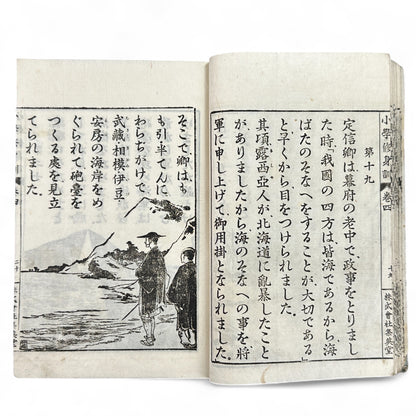 小學修身訓 卷四
十九
株式會社集英堂
第十九
定信卿は、幕府の老中で、政事をとりまし
た時、「我國の四方は皆海であるから、海
ばたのそなへをすることが、大切である」
と、早くから目をつけられました。
其頃露西亞人が、北海道に亂暴したこと
がありましたから、海のそなへの事を將
軍に申し上げて、御用掛となられました。
そこで、卿は、も
も引半てんに、
わらぢがけで、
武藏相模伊豆
安房の海岸をめ
ぐられて、砲臺を
つくる處を見立
てられました。